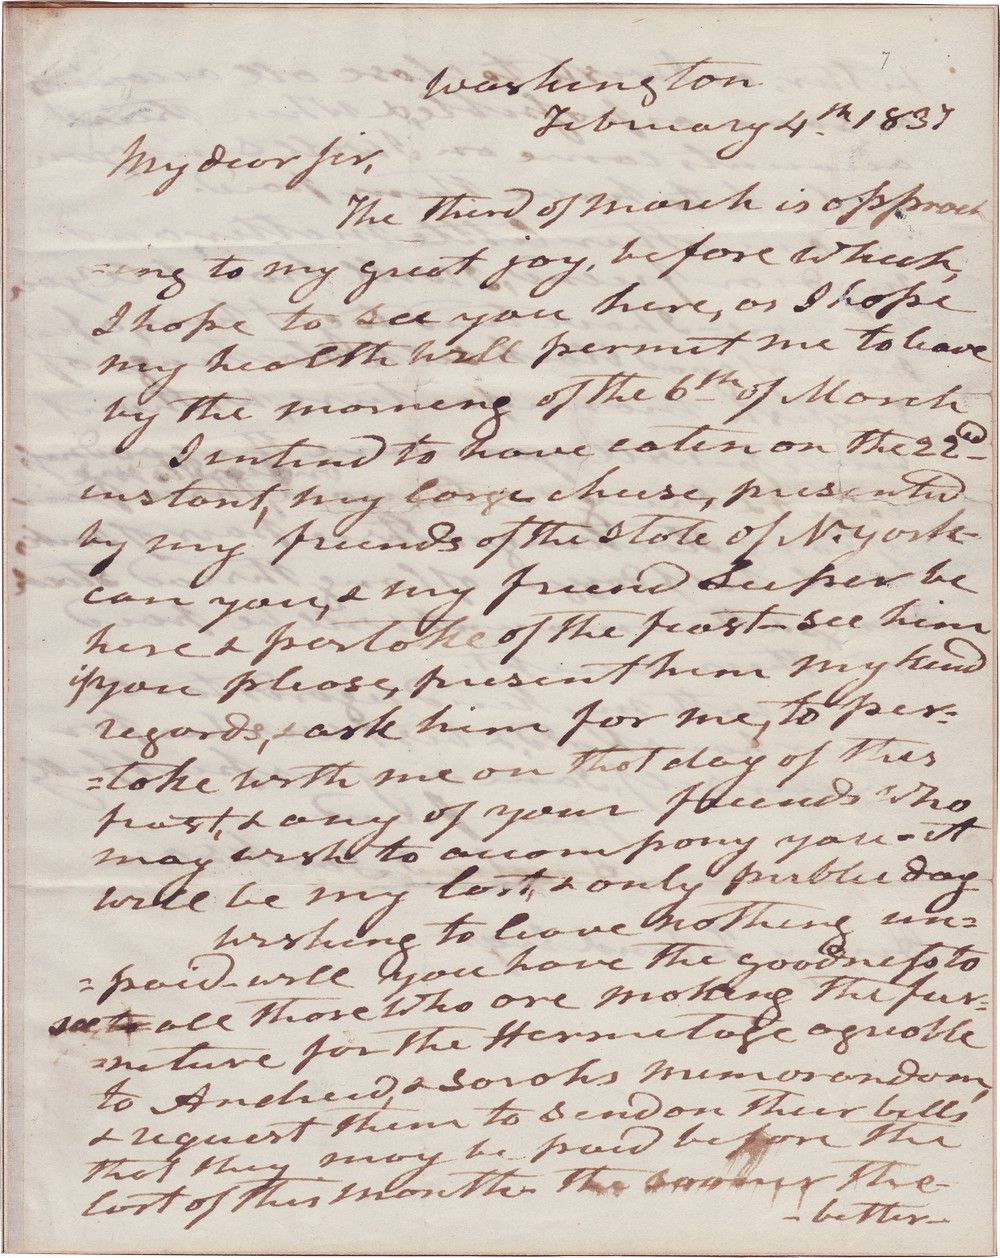 7
Washington
February 4th 1837
My dear Sir,
The third of March is approch
=ing to my great joy, before which,
I hope to see you here, as I hope
my health will permit me to leave
by the morning of the 6th of March
I intend to have eaten on the 22nd
instant, my large cheese, presented
by my friends of the State of N. york-
can you, & my friend Leiper be
here & pertake of the feast - see him
if you please, present him my kind
regards, & ask him for me, to per=
=take with me on that day of this
feast, & any of your friends who
may wish to accompony you - it
will be my last, & only public day
wishing to leave nothing un=
=paid - will you have the goodness to
see to all those who are making the fur=
=niture for the Hermitage agreable
to Andrew, & Sarahs memorandom,
& request them to send on their bills
that they may be paid before the
last of this month - the sooner the
- better -